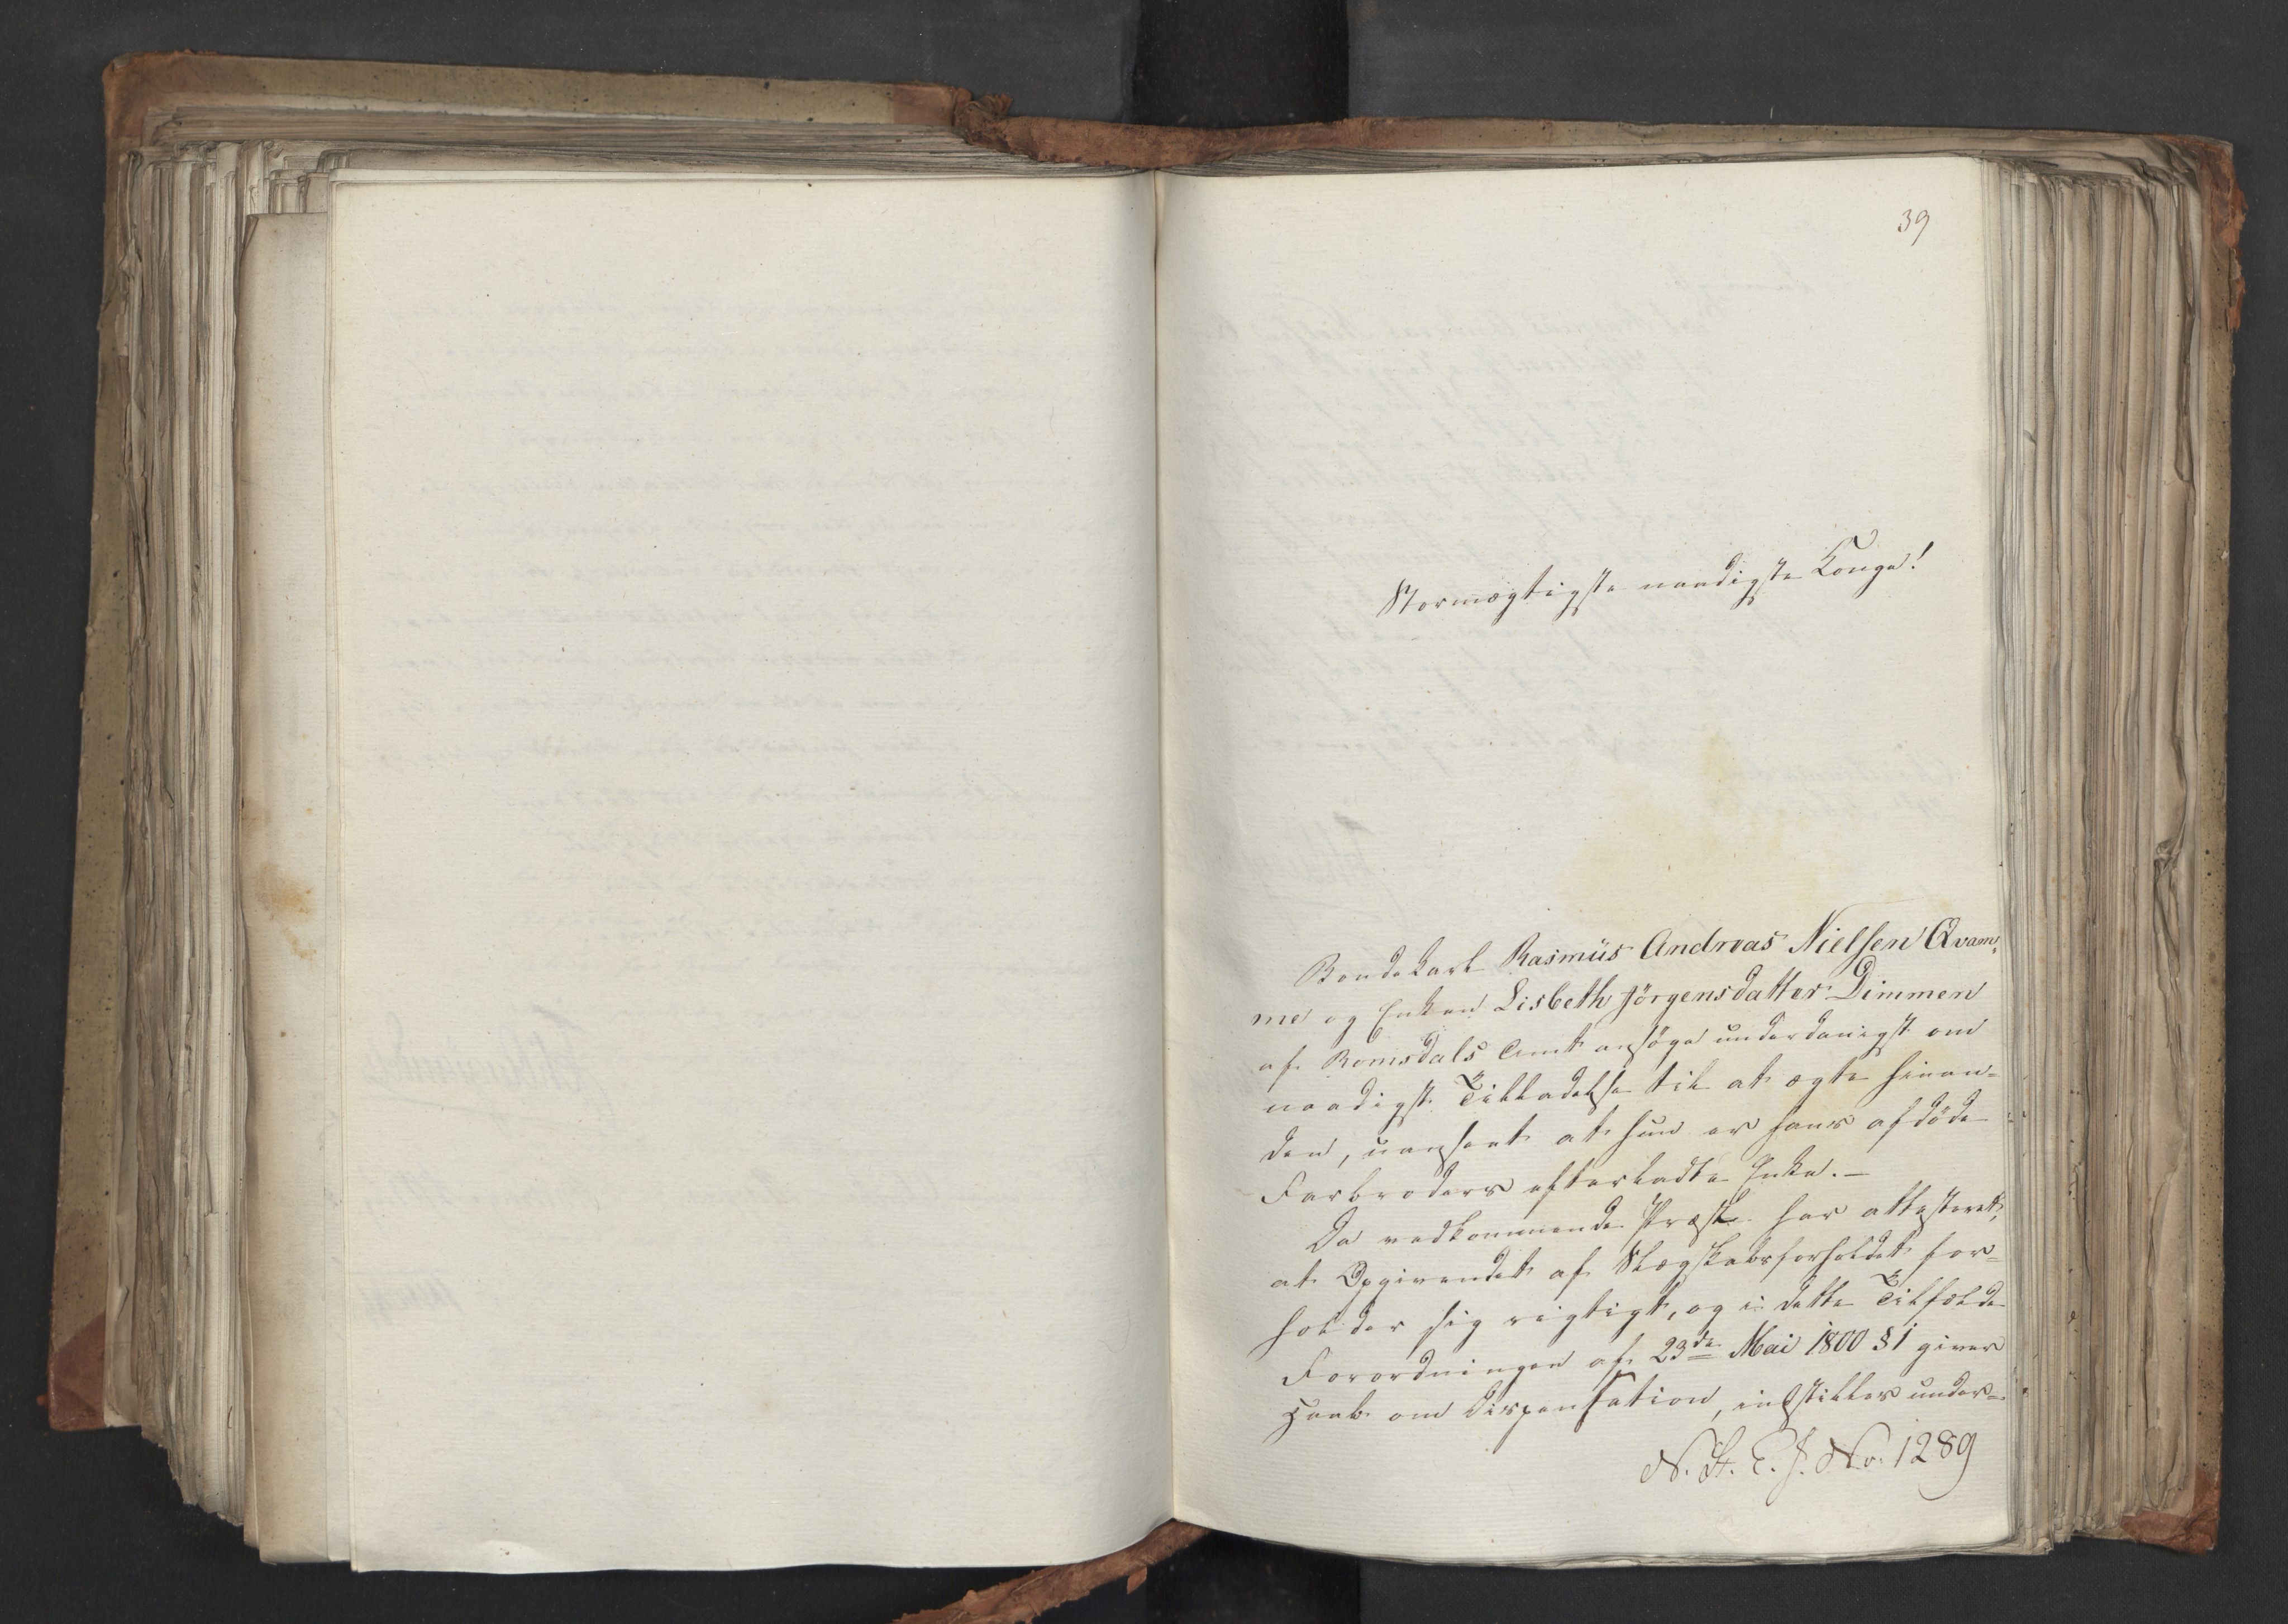 39
Stormægtigste naadigste Konge!
Bondekarl Rasmüs Andreas Nielsen Qvam-
me og Enken Lisbeth Jörgensdatter Dimmen
af Romsdals Amt ansöge underdanigst om
naadigst Tilladelse til at ægte hinan-
den, uanseet at hun er hans afdöde
Farbroders efterladte Enke. —
Da vedkommende Præst har attesteret,
at Opgivendet af Slægskabsforholdet for-
holder sig rigtigt, og i dette Tilfælde
Forordningen af 23de Mai 1800 § 1 giver
Haab om Dispensation, indstilles under-
N. St. E. J. No. 1289